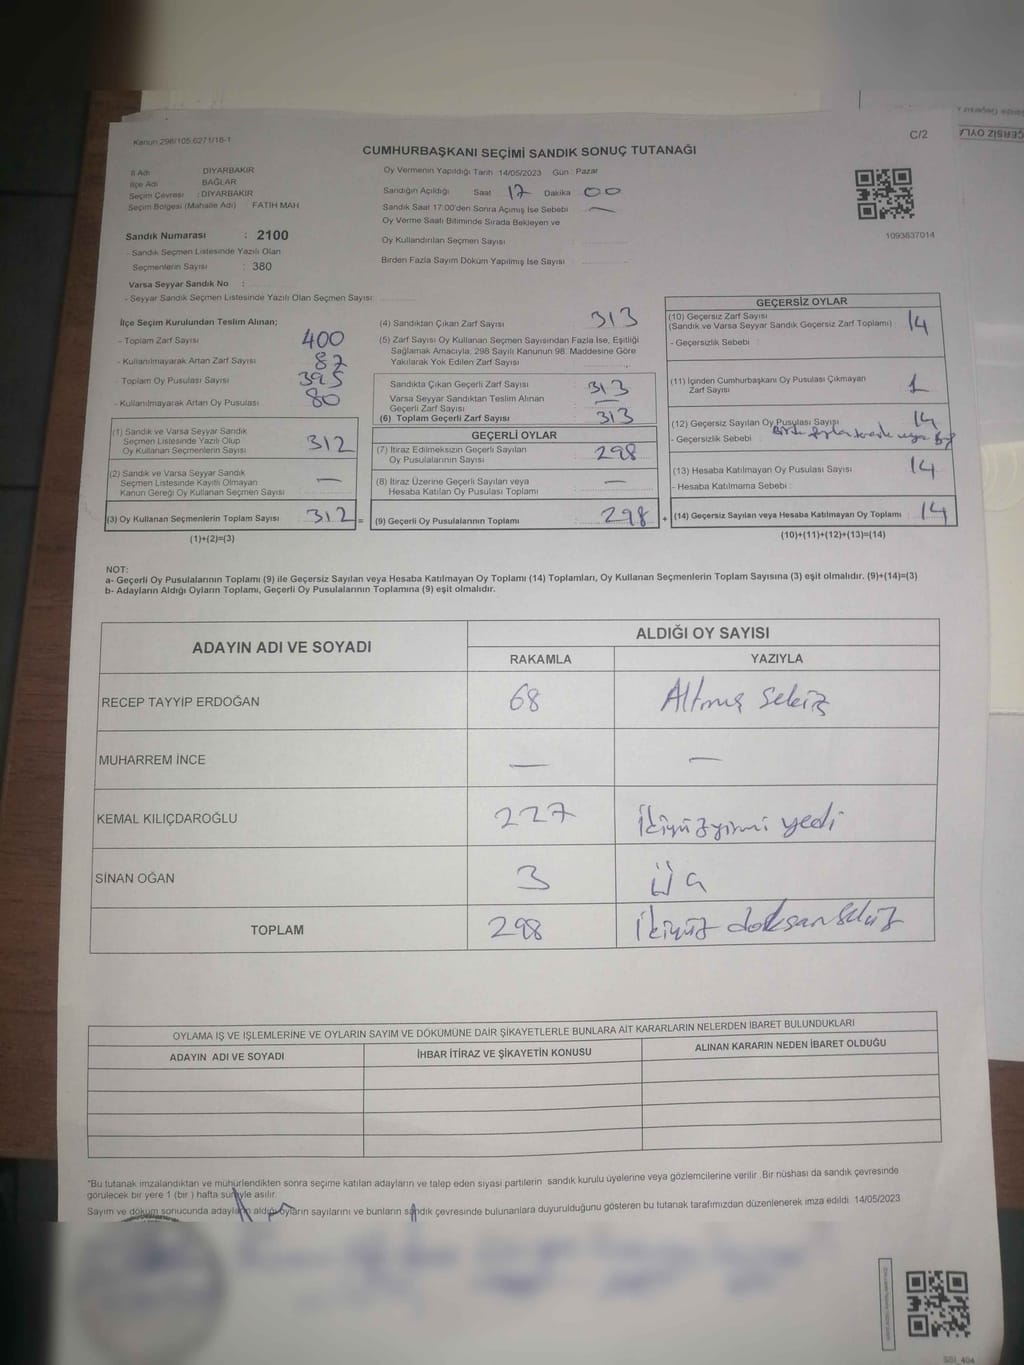 Kanun 298/105.6271/18-1
C/2
CUMHURBAŞKANI SEÇİMİ SANDIK SONUÇ TUTANAĞI
İl Adı DİYARBAKIR
İlçe Adı BAĞLAR
Seçim Çevresi : DİYARBAKIR
Seçim Bölgesi (Mahalle Adı) : FATİH MAH
Sandık Numarası : 2100
- Sandık Seçmen Listesinde Yazılı Olan
Seçmenlerin Sayısı : 380
Varsa Seyyar Sandık No :
- Seyyar Sandık Seçmen Listesinde Yazılı Olan Seçmen Sayısı:
Oy Vermenin Yapıldığı Tarih 14/05/2023 Gün : Pazar
Sandığın Açıldığı Saat 17 Dakika 00
Sandık Saat 17:00'den Sonra Açımış İse Sebebi : —
Oy Verme Saati Bitiminde Sırada Bekleyen ve
Oy Kullandırılan Seçmen Sayısı
Birden Fazla Sayım Döküm Yapılmış İse Sayısı :
1093837014
İlçe Seçim Kurulundan Teslim Alınan;
- Toplam Zarf Sayısı : 400
- Kullanılmayarak Artan Zarf Sayısı : 87
- Toplam Oy Pusulası Sayısı : 395
- Kullanılmayarak Artan Oy Pusulası : 80
(1) Sandık ve Varsa Seyyar Sandık
Seçmen Listesinde Yazılı Olup
Oy Kullanan Seçmenlerin Sayısı : 312
(2) Sandık ve Varsa Seyyar Sandık
Seçmen Listesinde Kayıtlı Olmayan
Kanun Gereği Oy Kullanan Seçmen Sayısı : —
(3) Oy Kullanan Seçmenlerin Toplam Sayısı : 312 =
(1)+(2)=(3)
(4) Sandıktan Çıkan Zarf Sayısı : 313
(5) Zarf Sayısı Oy Kullanan Seçmen Sayısından Fazla İse, Eşitliği
Sağlamak Amacıyla, 298 Sayılı Kanunun 98. Maddesine Göre
Yakılarak Yok Edilen Zarf Sayısı
Sandıkta Çıkan Geçerli Zarf Sayısı : 313
Varsa Seyyar Sandıktan Teslim Alınan
Geçerli Zarf Sayısı : —
(6) Toplam Geçerli Zarf Sayısı : 313
GEÇERLİ OYLAR
(7) İtiraz Edilmeksizin Geçerli Sayılan
Oy Pusulalarının Sayısı : 298
(8) İtiraz Üzerine Geçerli Sayılan veya
Hesaba Katılan Oy Pusulası Toplamı : —
(9) Geçerli Oy Pusulalarının Toplamı : 298 +
GEÇERSİZ OYLAR
(10) Geçersiz Zarf Sayısı
(Sandık ve Varsa Seyyar Sandık Geçersiz Zarf Toplamı) : 14
- Geçersizlik Sebebi :
(11) İçinden Cumhurbaşkanı Oy Pusulası Çıkmayan
Zarf Sayısı : 1
(12) Geçersiz Sayılan Oy Pusulası Sayısı : 14
- Geçersizlik Sebebi :
(13) Hesaba Katılmayan Oy Pusulası Sayısı : 14
- Hesaba Katılmama Sebebi :
(14) Geçersiz Sayılan veya Hesaba Katılmayan Oy Toplamı : 14
(10)+(11)+(12)+(13)=(14)
NOT:
a- Geçerli Oy Pusulalarının Toplamı (9) ile Geçersiz Sayılan veya Hesaba Katılmayan Oy Toplamı (14) Toplamları, Oy Kullanan Seçmenlerin Toplam Sayısına (3) eşit olmalıdır. (9)+(14)=(3)
b- Adayların Aldığı Oyların Toplamı, Geçerli Oy Pusulalarının Toplamına (9) eşit olmalıdır.
ADAYIN ADI VE SOYADI
ALDIĞI OY SAYISI
RAKAMLA YAZIYLA
RECEP TAYYİP ERDOĞAN 68 Altmış sekiz
MUHARREM İNCE — —
KEMAL KILIÇDAROĞLU 227 İkiyüzyirmi yedi
SİNAN OĞAN 3 Üç
TOPLAM 298 İkiyüz doksansekiz
OYLAMA İŞ VE İŞLEMLERİNE VE OYLARIN SAYIM VE DÖKÜMÜNE DAİR ŞİKAYETLERLE BUNLARA AİT KARARLARIN NELERDEN İBARET BULUNDUKLARI
ADAYIN ADI VE SOYADI İHBAR İTİRAZ VE ŞİKAYETİN KONUSU ALINAN KARARIN NEDEN İBARET OLDUĞU
"Bu tutanak imzalandıktan ve mühürlendikten sonra seçime katılan adayların ve talep eden siyasi partilerin sandık kurulu üyelerine veya gözlemcilerine verilir. Bir nüshası da sandık çevresinde
görülecek bir yere 1 (bir) hafta süreyle asılır.
Sayım ve döküm sonucunda adayların aldığı oyların sayılarını ve bunların sandık çevresinde bulunanlara duyurulduğunu gösteren bu tutanak tarafımızdan düzenlenerek imza edildi. 14/05/2023